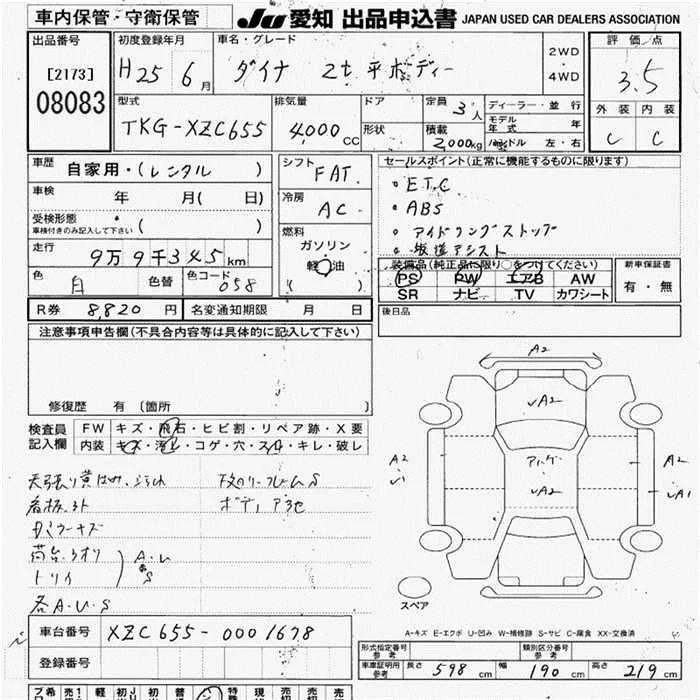 車内保管・守衛保管
JU 愛知 出品申込書 JAPAN USED CAR DEALERS ASSOCIATION
出品番号
[2173]
08083
初度登録年月
H25 6月
車名・グレード
ダイナ 2t 平ボディー
2WD
・
4WD
評価点
3.5
外装 内装
C C
型式
TKG-XZC655
排気量
4,000cc
ドア
形状
定員 3人
積載 2,000kg
ディーラー・並行
モデル年式 年
ハンドル 左・右
車歴 自家用・(レンタル)
車検 年 月( 日)
受検形態
車検付きのみ記入して下さい ( )
走行 9万9千345km
色 白 色替 色コード 058
シフト FAT.
冷房 AC
燃料
ガソリン
軽油
( )
セールスポイント(正常に機能するものに限ります)
・ETC
・ABS
・アイドリングストップ
・坂道アシスト
装備品(純正品に限り○をつけてください)
PS PW エアB AW
SR ナビ TV カワシート
新車保証書
有・無
R券 8,820円 名変通知期限 月 日
後日品
注意事項申告欄(不具合内容等は具体的に記入して下さい)
修復歴 有 (箇所 )
検査員記入欄
FW キズ・飛石・ヒビ割・リペア跡・X要
内装 キズ・汚れ・コゲ・穴・スレ・キレ・破レ
看板跡
ボディ
A・U
S
各A・U・S
A2
A2
A2
A2
A2
A1
スペア
A-キズ E-エクボ U-凹み W-補修跡 S-サビ C-腐食 XX-交換済
車台番号 XZC655-0001678
登録番号
型式指定番号
参考
類別区分番号
参考
車庫証明用
参考
長さ 598cm 幅 190cm 高さ 219cm